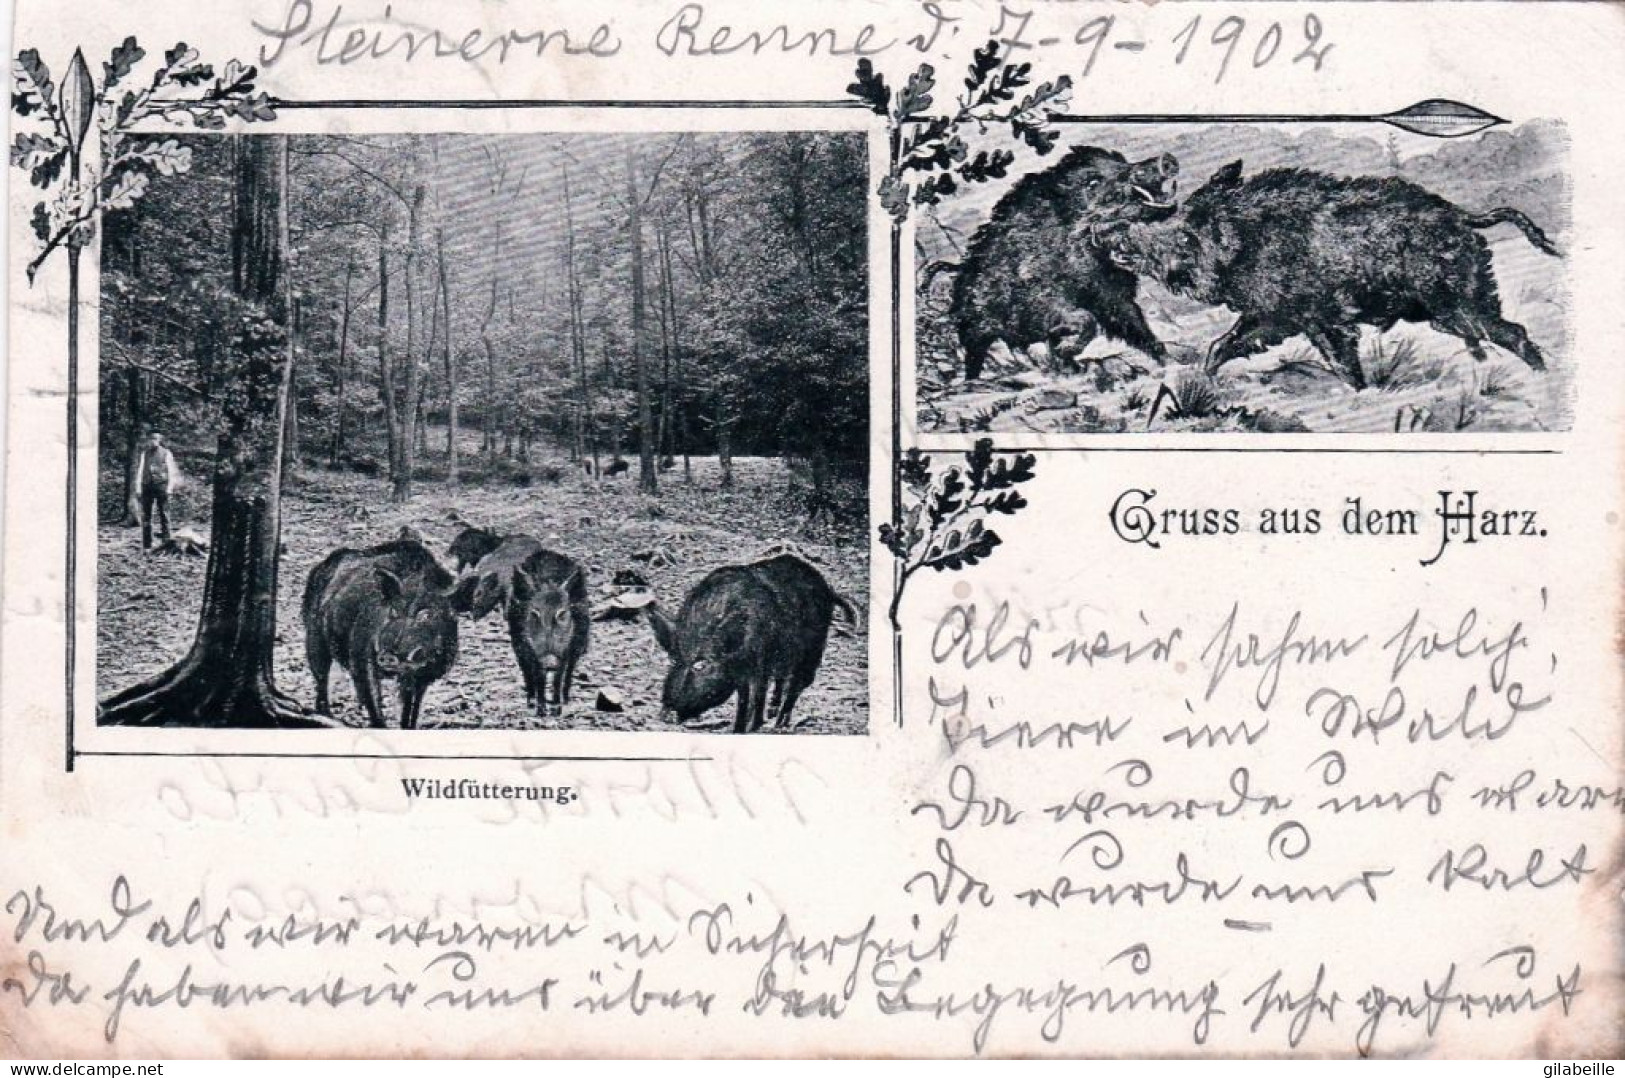 Steinerne Renne d. 7-9-1902
Gruss aus dem Harz.
Als wir sahen solch'
Tiere im Wald
Da wurde uns warm
Da wurde uns kalt
Wildfütterung.
Und als wir waren in Sicherheit
Da haben wir uns über die Begegnung sehr gefreut
delcampe.net
gilabeille